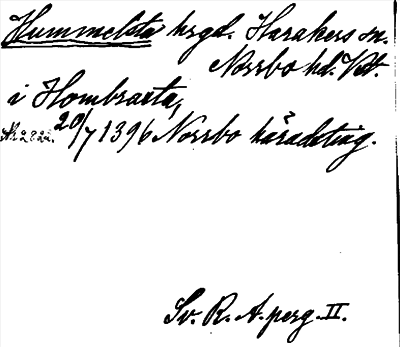 Hummelsta hrgd. Harakers sn.
Norrbo hd. Vstm.
i Hombrasta,
20/7 1396 Norrbo häradsting.
Sv. R. A. perg. II.